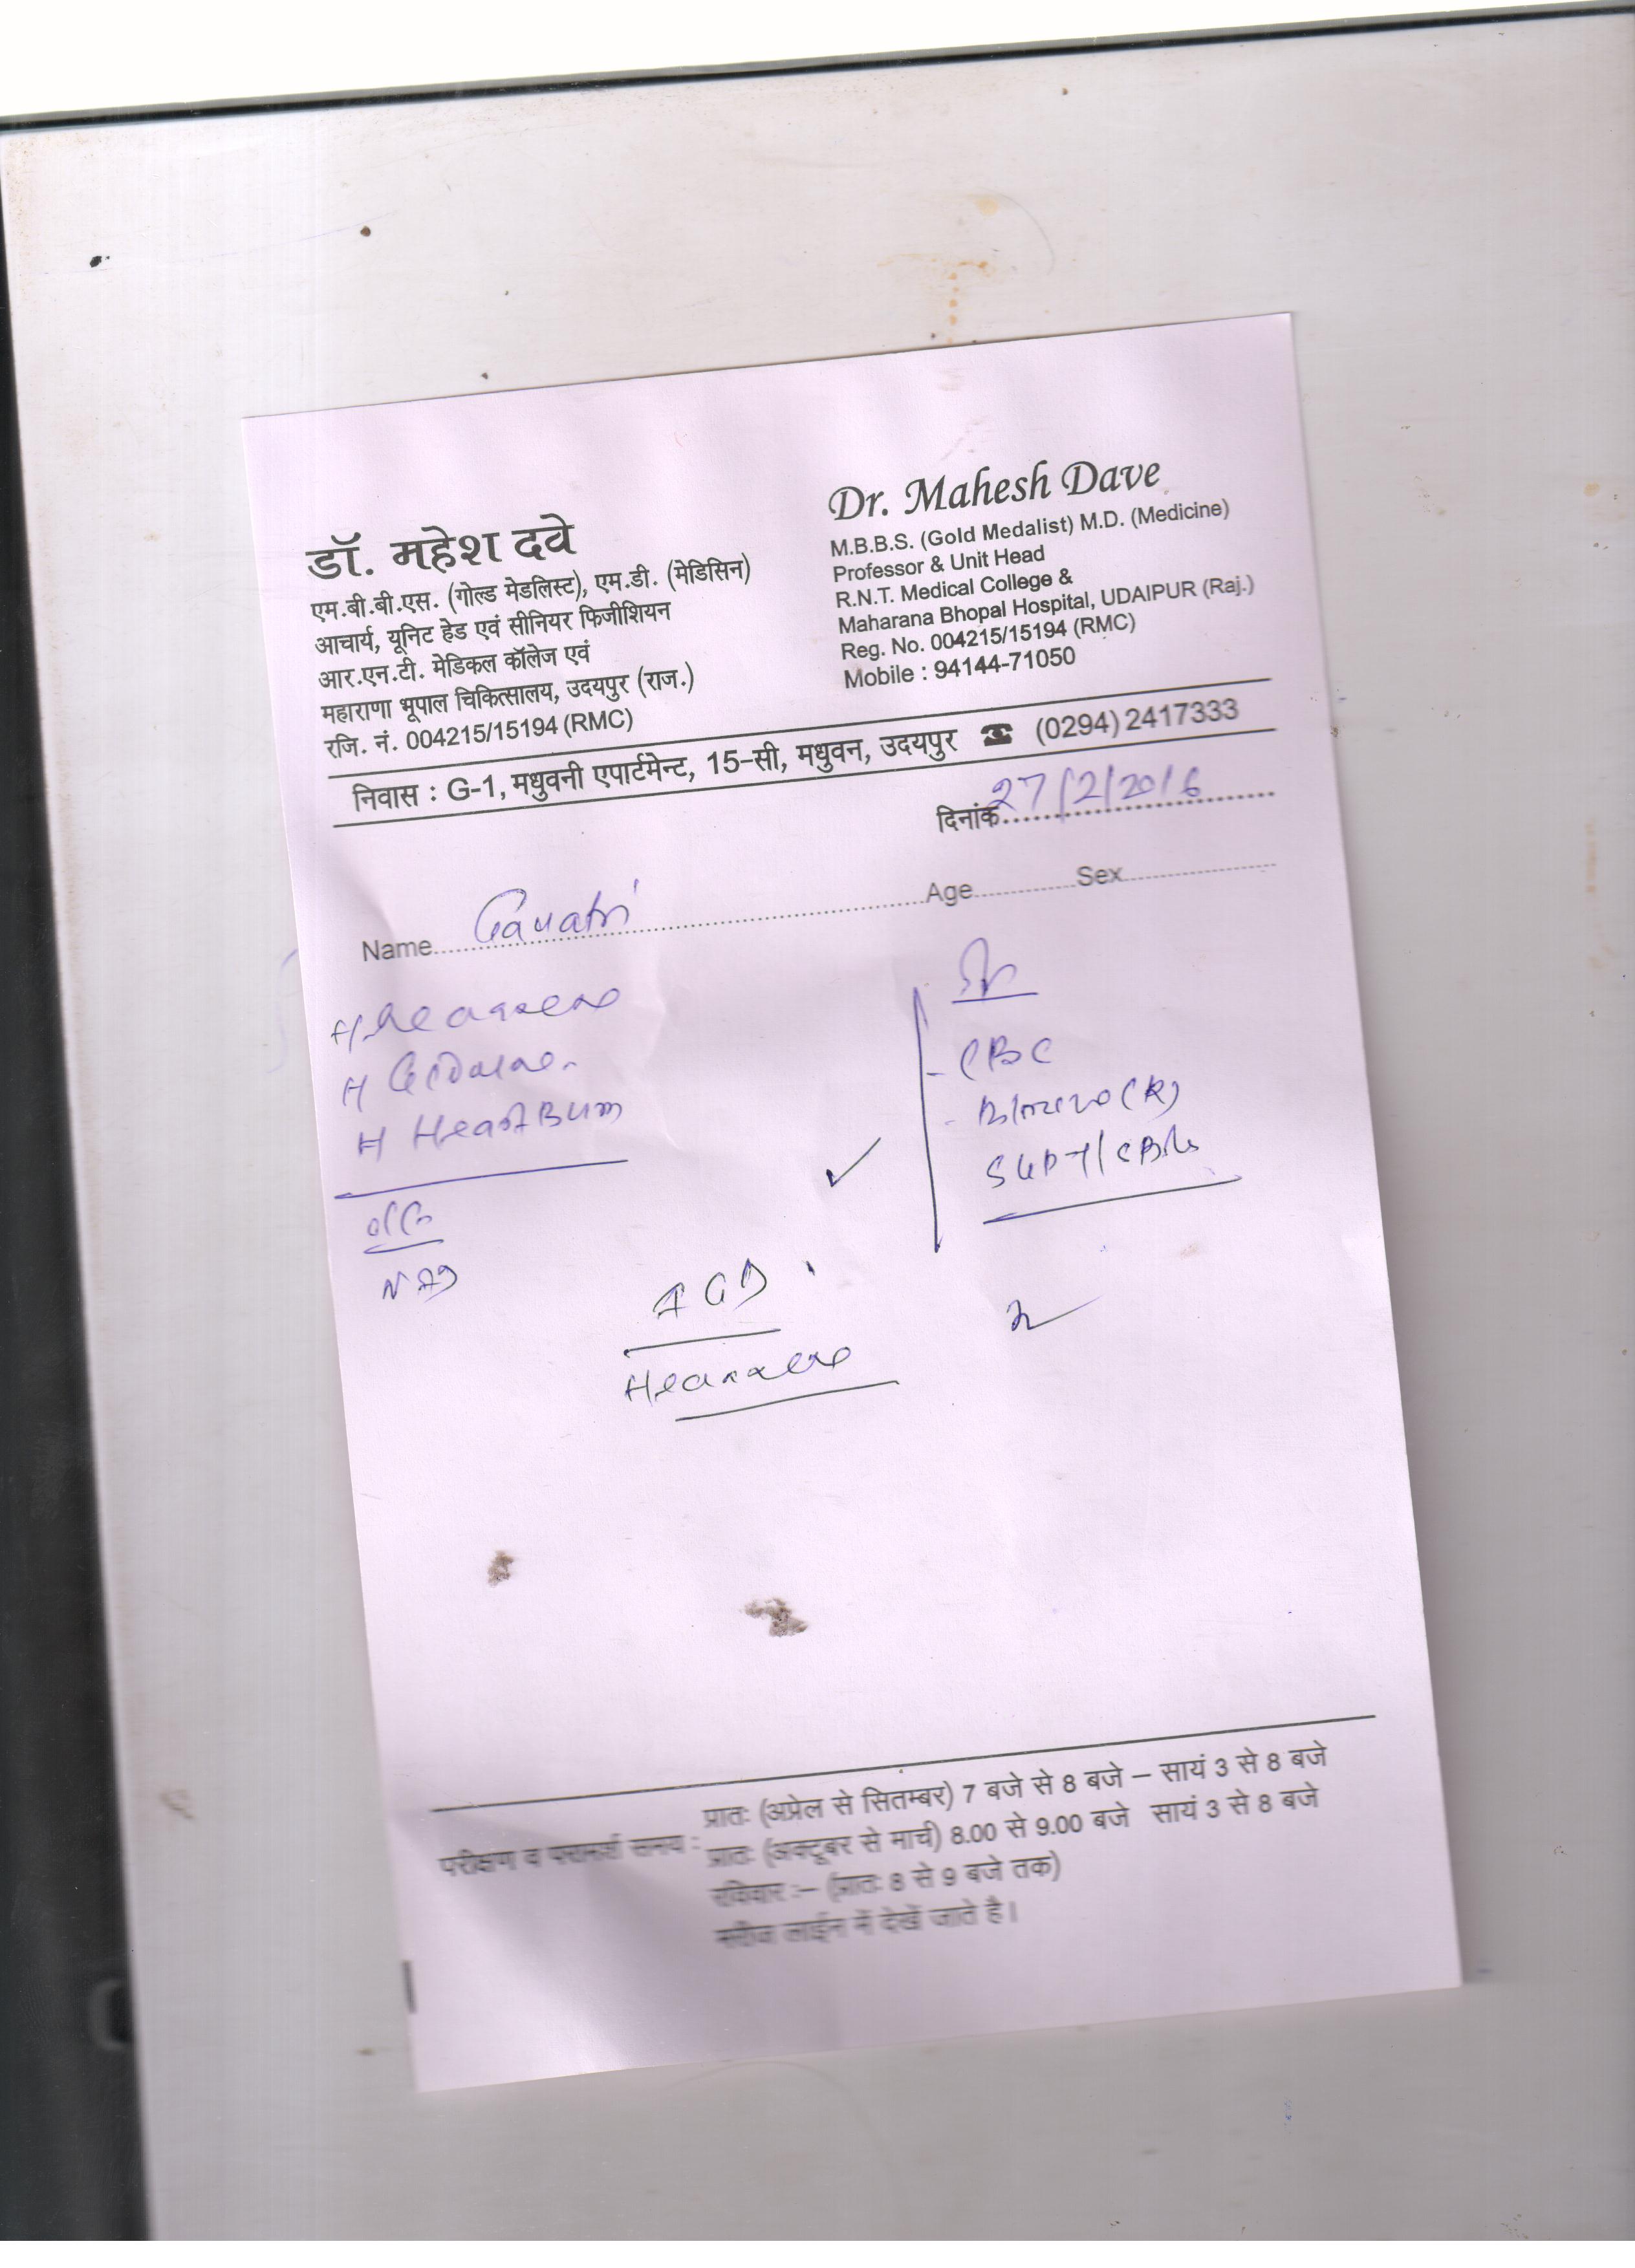 डॉ. महेश दवे
एम.बी.बी.एस. (गोल्ड मेडलिस्ट), एम.डी. (मेडिसिन)
आचार्य, यूनिट हेड एवं सीनियर फिजीशियन
आर.एन.टी. मेडिकल कॉलेज एवं
महाराणा भूपाल चिकित्सालय, उदयपुर (राज.)
रजि. नं. 004215/15194 (RMC)
Dr. Mahesh Dave
M.B.B.S. (Gold Medalist) M.D. (Medicine)
Professor & Unit Head
R.N.T. Medical College &
Maharana Bhopal Hospital, UDAIPUR (Raj.)
Reg. No. 004215/15194 (RMC)
Mobile : 94144-71050
निवास : G-1, मधुवनी एपार्टमेन्ट, 15-सी, मधुवन, उदयपुर ☎ (0294) 2417333
दिनांक 27/2/2016
Name Gayatri Age Sex
H HeartBurn
NAD
- CBC
AGD
प्रातः (अप्रेल से सितम्बर) 7 बजे से 8 बजे – सायं 3 से 8 बजे
परीक्षण व परामर्श समय : प्रातः (अक्टूबर से मार्च) 8.00 से 9.00 बजे सायं 3 से 8 बजे
रविवार :– (प्रातः 8 से 9 बजे तक)
मरीज लाईन में देखें जाते है।